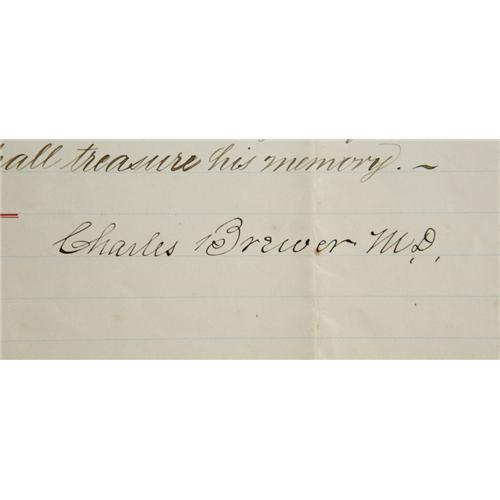 all treasure his memory. –
Charles Brewer M.D.